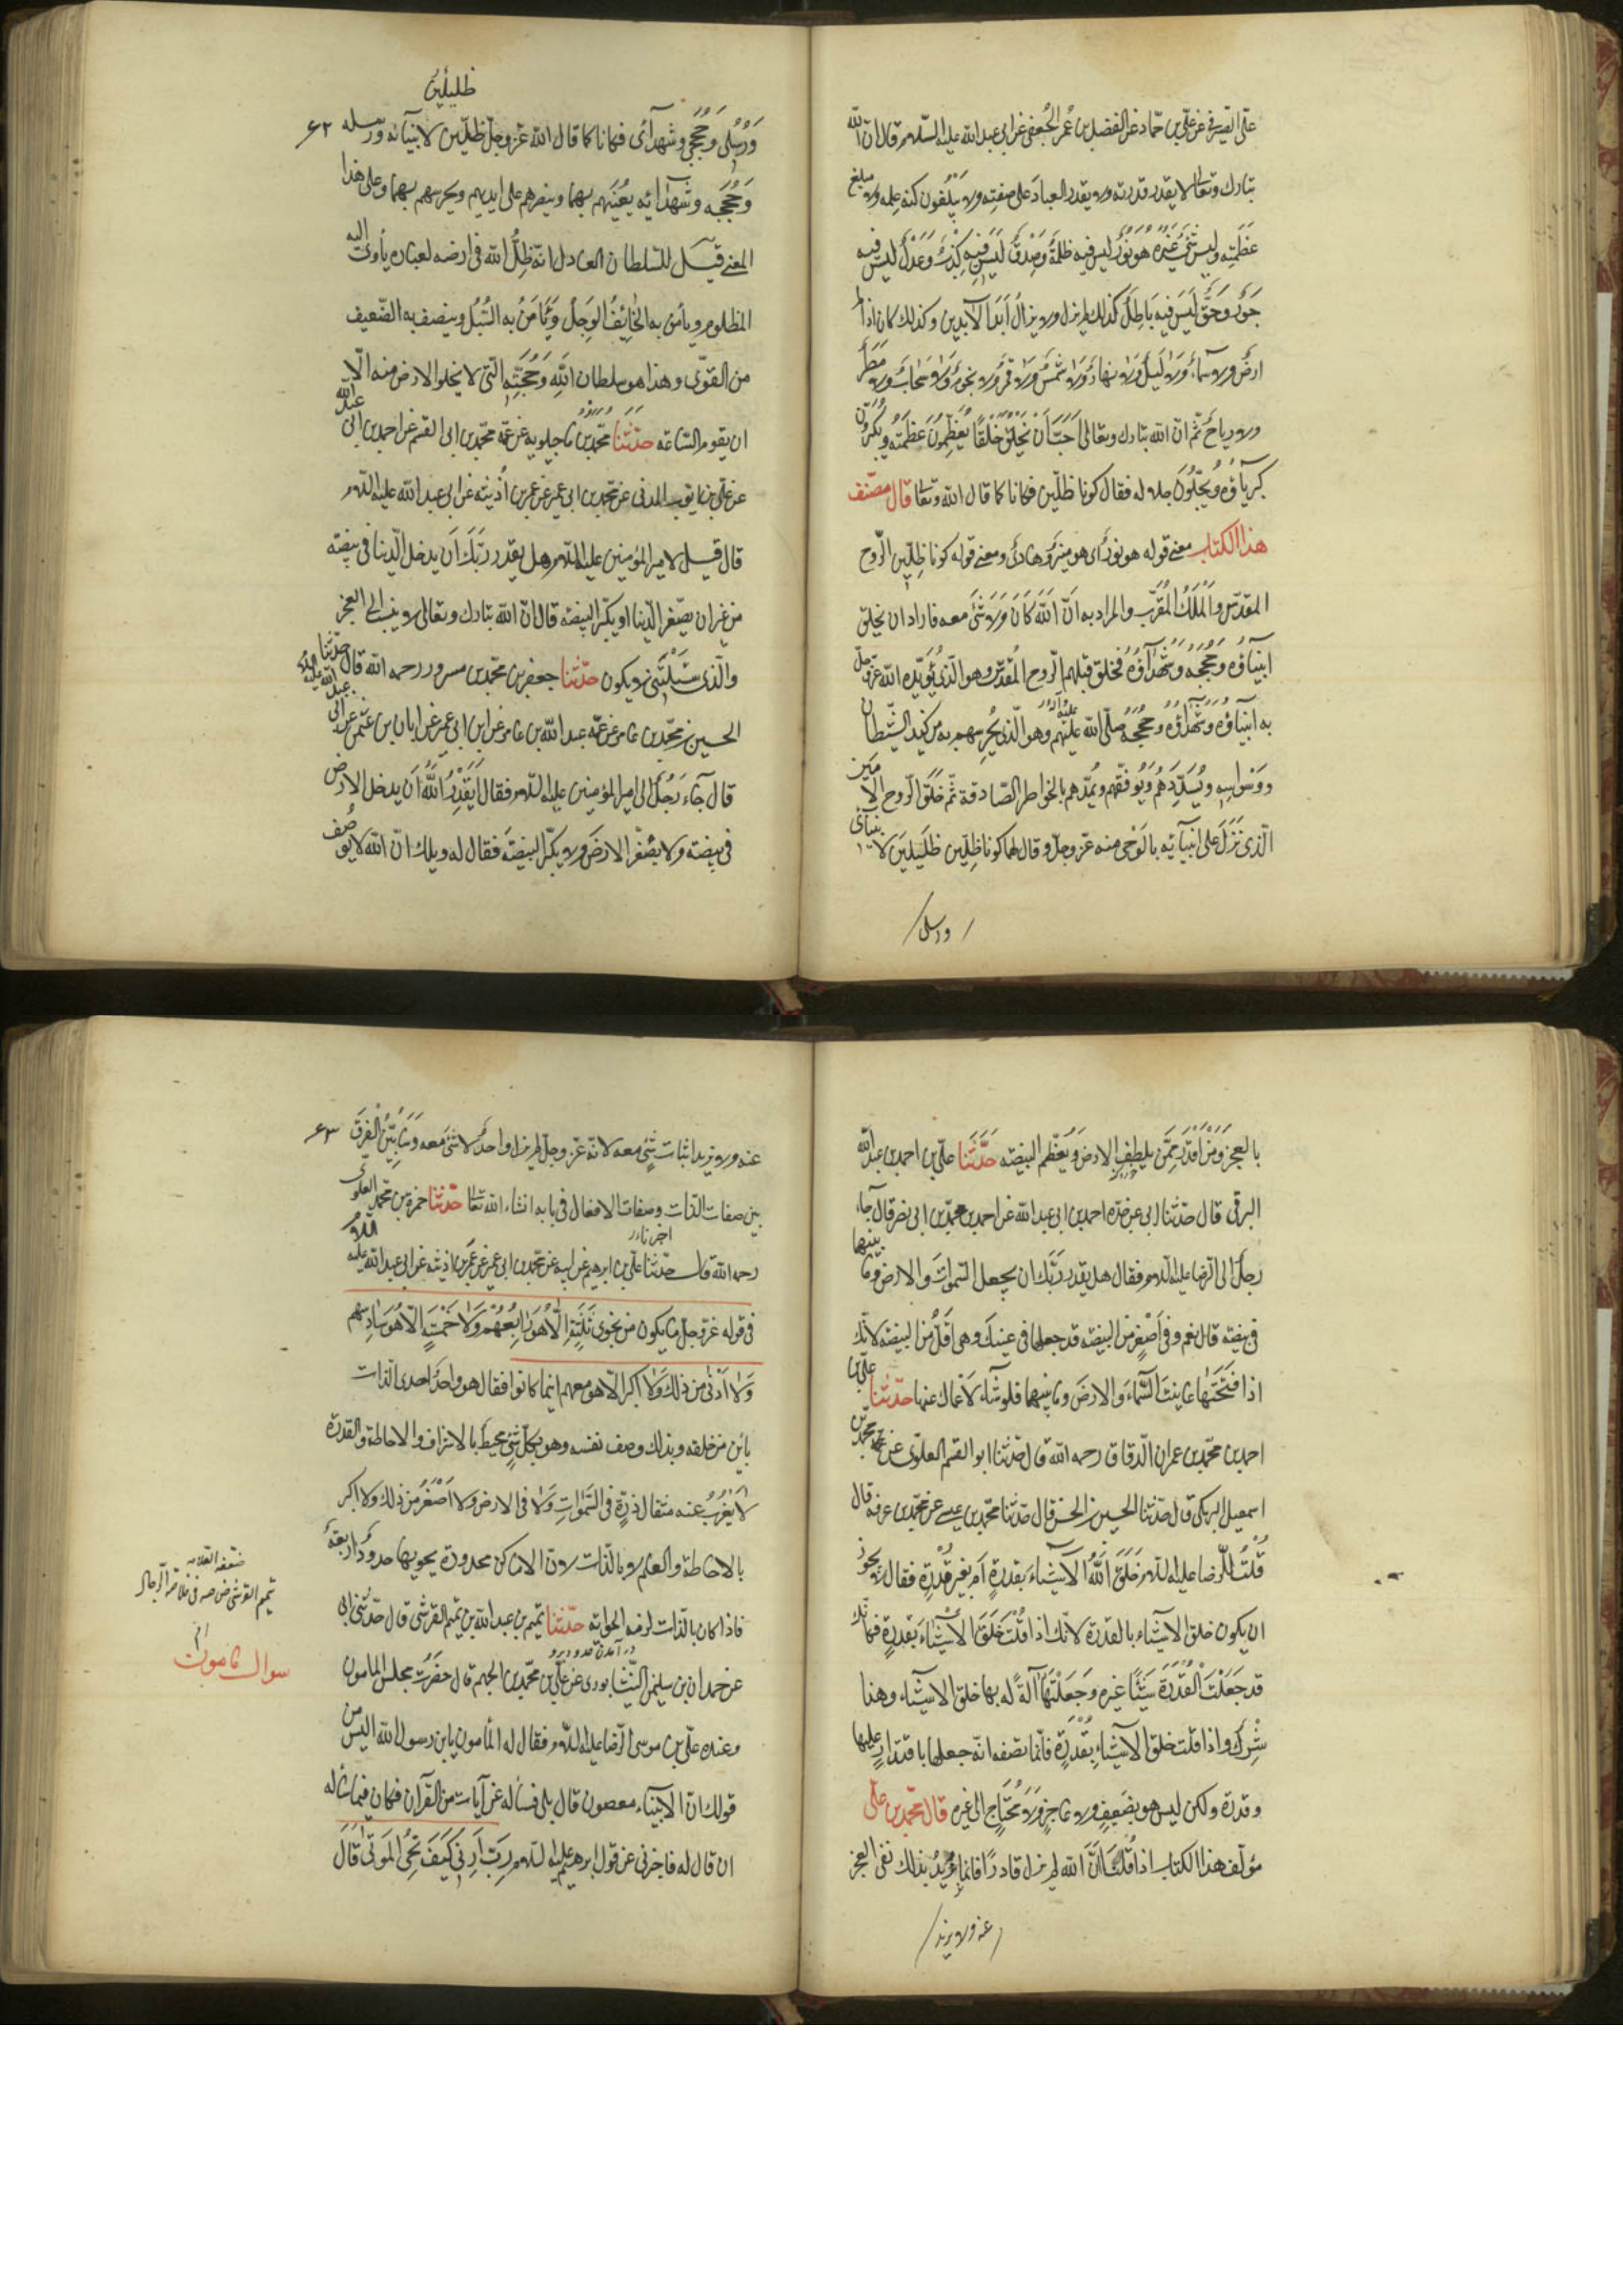 علي القصير في عن علي بن حماد عن المفضل بن عمر الجعفي عن ابي عبد الله عليه السلام قال ان الله
تبارك وتعالى لا يقدر قدرته ولا يقدر العباد على صفته ولا يبلغون كنه علمه ولا مبلغ
عظمته وليس شيء غيره هو نور ليس فيه ظلمة وصدق ليس فيه كذب وعدل ليس فيه
جور وحق ليس فيه باطل كذلك لم يزل ولا يزال ابد الآبدين وكذلك كان اذ لم
ارض ولا سماء ولا ليل ولا نهار ولا شمس ولا قمر ولا نجوم ولا سحاب ولا مطر
ولا رياح ثم ان الله تبارك وتعالى احب ان يخلق خلقا يعظمون عظمته ويكبرون
كبرياؤه ويجلون جلاله فقال كونا ظلين فكانا كما قال الله وتعالى قال مصنف
هذا الكتاب معنى قوله هو نور اي هو منير وهادي ومعنى قوله كونا ظلين الروح
المقدس والملك المقرب والمراد به ان الله كان ولا شيء معه فاراد ان يخلق
انبياؤه وحججه وشهداؤه فخلق قبلهم الروح المقدس وهو الذي يؤيد الله عز وجل
به انبياؤه وشهداؤه وحججه صلى الله عليهم وهو الذي يحرسهم به من كيد الشيطان
ووسواسه ويسددهم ويوفقهم ويمدهم بالخواطر الصادقة ثم خلق الروح الامين
الذي نزل على انبيائه بالوحي منه عز وجل وقال لهما كونا ظلين ظليلين لانبيائي
ورسلي
ظليلين
ورسلي وحججي وشهدائي فكانا كما قال الله عز وجل ظلين لانبيائه ورسله ٦٢
وحججه وشهدائه يعينهم بهما وينصرهم على ايديهم ويحرسهم بهما وعلى هذا
المعنى قيل للسلطان العادل انه ظل الله في ارضه لعباده يأوي اليه
المظلوم ويأمن به الخائف الوجل ويأمن به السبل وينصف به الضعيف
من القوي وهذا هو سلطان الله وحجته التي لا يخلو الارض منه الا
ان يقوم الساعة حدثنا محمد بن ماجلويه عن عمه محمد بن ابي القسم عن احمد بن ابي عبد الله
عن علي بن ايوب المدني عن محمد بن ابي عمير عن عمر بن اذينه عن ابي عبد الله عليه السلام
قال قيل لامير المؤمنين عليه السلام هل يقدر ربك ان يدخل الدنيا في بيضة
من غير ان يصغر الدنيا او يكبر البيضة قال ان الله تبارك وتعالى لا ينسب الى العجز
والذي سئلتني لا يكون حدثنا جعفر بن محمد بن مسرور رحمه الله قال حدثنا
الحسين بن محمد بن عامر عن عمه عبد الله بن عامر عن ابن ابي عمير عن ابان بن عثمن عن ابي عبد الله عليه السلام
قال جاء رجل الى امير المؤمنين عليه السلام فقال ايقدر الله ان يدخل الارض
في بيضة ولا يصغر الارض ولا يكبر البيضة فقال له ويلك ان الله لا يوصف
بالعجز ومن اقدر ممن يلطف الارض ويعظم البيضة حدثنا علي بن احمد بن عبد الله
البرقي قال حدثنا ابي عن جده احمد بن ابي عبد الله عن احمد بن محمد بن ابي نصر قال جاء
رجل الى الرضا عليه السلام فقال هل يقدر ربك ان يجعل السموات والارض وما بينهما
في بيضة قال نعم وفي اصغر من البيضة قد جعلها في عينك وهي اقل من البيضة لانك
اذا فتحتها عاينت السماء والارض وما بينهما فلو شاء لاعماك عنها حدثنا علي بن
احمد بن محمد بن عمران الدقاق رحمه الله قال حدثنا ابو القسم العلوي عن محمد بن
اسمعيل البرمكي قال حدثنا الحسين بن الحسن قال حدثنا محمد بن عيسى عن محمد بن عرفه قال
قلت للرضا عليه السلام خلق الله الاشياء بقدرة ام بغير قدرة فقال لا يجوز
ان يكون خلق الاشياء بالقدرة لانك اذا قلت خلق الاشياء بقدرة فكانك
قد جعلت القدرة شيئا غيره وجعلتها آلة له بها خلق الاشياء وهذا
شرك واذا قلت خلق الاشياء بقدرة فانما تصفه انه جعلها باقتدار عليها
وقدرة ولكن ليس هو بضعيف ولا عاجز ولا محتاج الى غيره قال محمد بن علي
مؤلف هذا الكتاب اذا قلت ان الله لم يزل قادرا فانما نريد بذلك نفي العجز
عنه ولا نريد
عنه ولا نريد اثبات شيء معه لانه عز وجل لم يزل واحدا لا شيء معه وسابين الفرق ٦٣
بين صفات الذات وصفات الافعال في بابه انشاء الله تعالى حدثنا حمزة بن محمد العلوي
رحمه الله قال حدثنا علي بن ابرهيم عن ابيه عن محمد بن ابي عمير عن عمر بن اذينه عن ابي عبد الله عليه السلام
اخبرنا
في قوله عز وجل ما يكون من نجوى ثلثة الا هو رابعهم ولا خمسة الا هو سادسهم
ولا ادنى من ذلك ولا اكثر الا هو معهم اينما كانوا فقال هو واحد احدي الذات
باين من خلقه وبذلك وصف نفسه وهو بكل شيء محيط بالاشراف والاحاطة والقدرة
لا يعزب عنه مثقال ذرة في السموات ولا في الارض ولا اصغر من ذلك ولا اكبر
بالاحاطة والعلم لا بالذات لان الاماكن محدودة يحويها حدود اربعة
فاذا كان بالذات لزمه الحواية حدثنا تميم بن عبد الله بن تميم القرشي قال حدثني ابي
عن حمدان بن سليمن النيشابوري عن علي بن محمد بن الجهم قال حضرت مجلس المامون
وعنده علي بن موسى الرضا عليه السلام فقال له المأمون يا بن رسول الله اليس من
قولك ان الانبياء معصومون قال بلى فسأله عن آيات من القرآن فكان فيما سأله
ان قال له فاخبرني عن قول ابرهيم عليه السلام رب ارني كيف تحي الموتى قال
ضعفه العلامه
سوال مامون